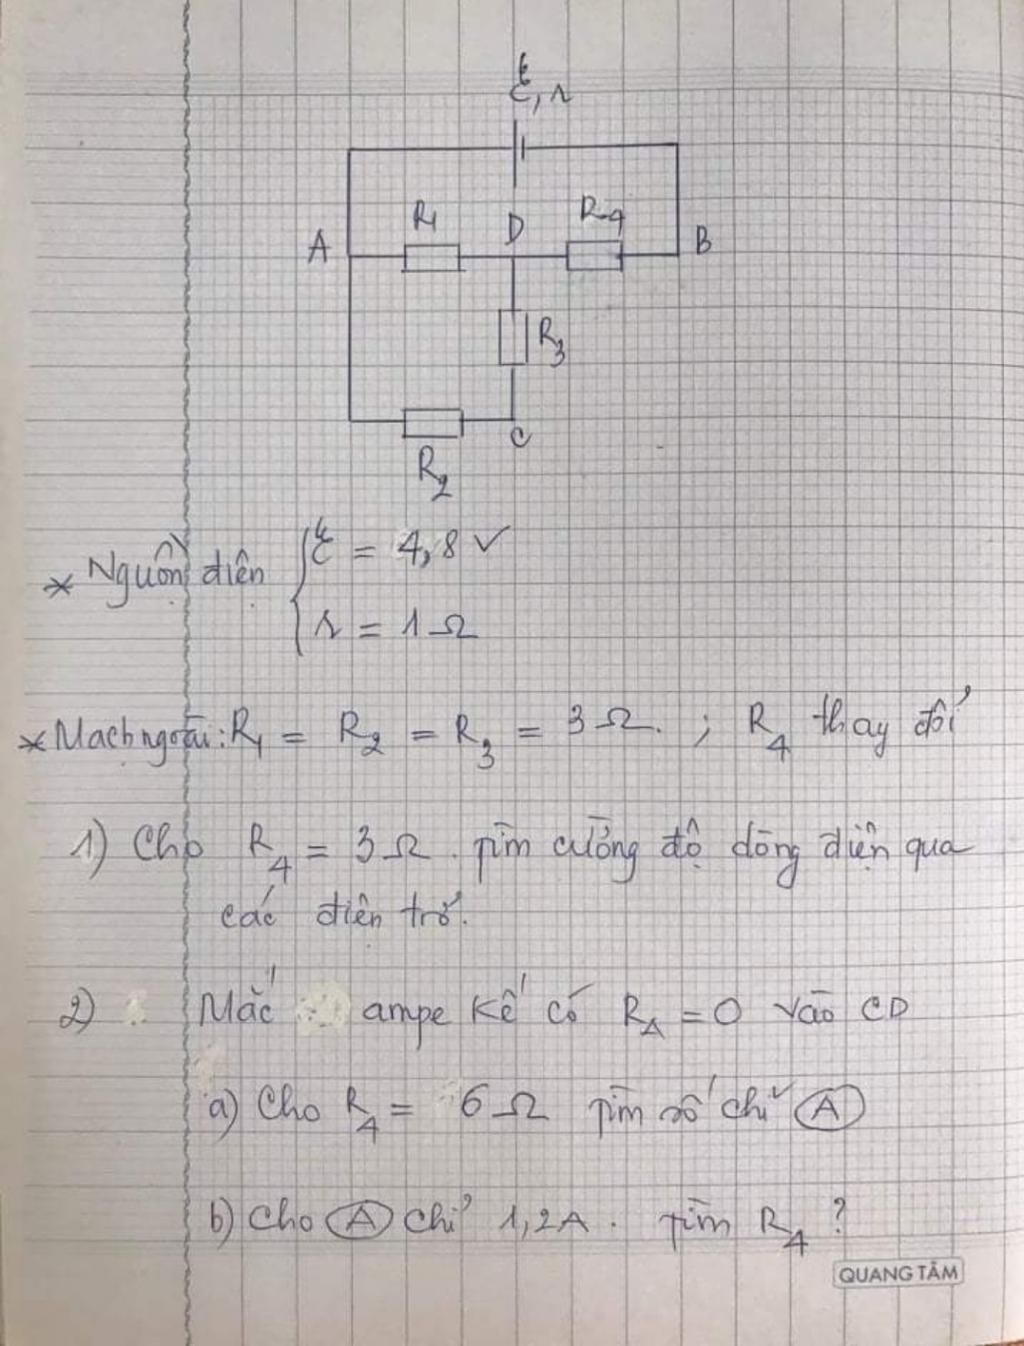 ξ, r
R1 D R4
A B
R3
C
R2
* Nguồn điện { ξ = 4,8 V
r = 1 Ω
* Mạch ngoài: R1 = R2 = R3 = 3 Ω. ; R4 thay đổi
1) Cho R4 = 3 Ω. Tìm cường độ dòng điện qua
các điện trở.
2) Mắc ampe kế có RA = 0 vào CD
a) Cho R4 = 6 Ω Tìm số chỉ (A)
b) Cho (A) chỉ 1,2A. Tìm R4 ?
QUANG TÂM